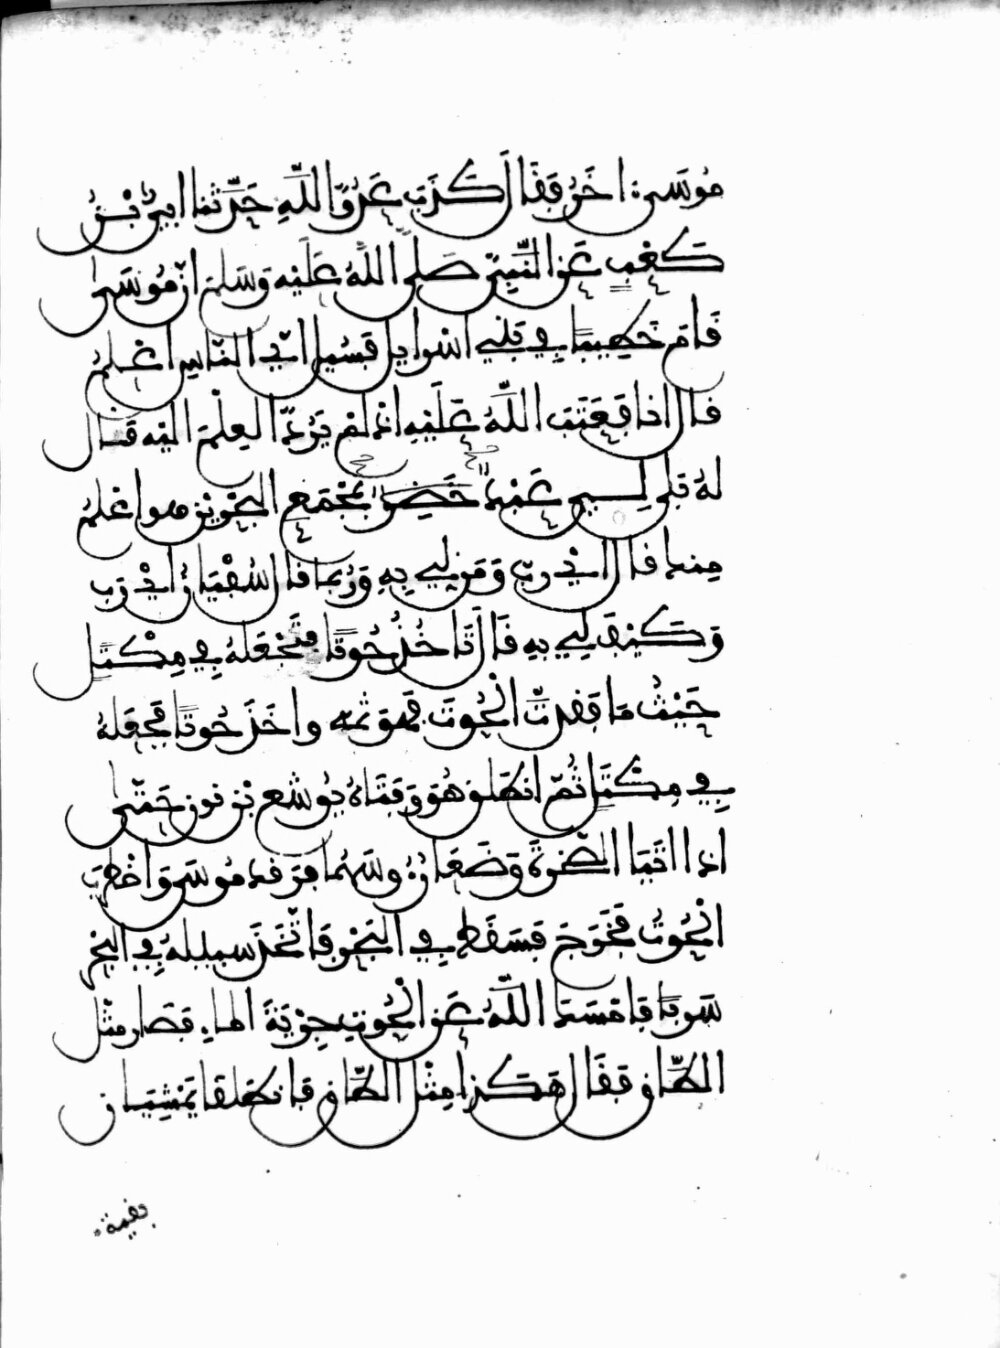 مُوسَى اخَرُ فَقَالَ كَذَبَ عَدُوُّ اللَّهِ حَدَّثَنَا ابَيُّ بْنُ
كَعْبٍ عَنِ النَّبِيِّ صَلَّى اللَّهُ عَلَيْهِ وَسَلَّمَ انَّ مُوسَى
قَامَ خَطِيبًا فِي بَنِي اسْرَايلَ فَسُيلَ ايُّ النَّاسِ اعْلَمُ
قال انا فَعَتَبَ اللَّهُ عَلَيْهِ اذْ لَمْ يَرُدَّ الْعِلْمَ الَيْهِ قَالَ
لهُ بَلَى لِي عَبْدٌ خَضِرٌ بِمَجْمَعِ الْبَحْرَيْنِ هوا عْلَمُ
مِنك قال ايْ رَبِّ وَمَن لِي بِهِ وَرُبَّمَا قال سُفْيَانُ ايْ رَبِّ
وَكَيْفَ لِي بِهِ قَالَ تَاخُذُ حُوتًا فَتَجْعَلُهُ فِي مِكْتَلٍ
حَيْثُ مَا فَقَدتَّ الْحُوتَ فَهوَ ثمه واخَذَ حُوتًا فَجَعَلَهُ
فِي مِكْتَلٍ ثُمَّ انطَلَقَ هُوَ وَفَتَاهُ يُوشَعُ بْنُ نُونٍ حَتَّى
اذا اتَيَا الصَّخْرَةَ وَضَعَا رُءُوسَهُمَا فرَقَدَ مُوسَى وَاضْطَرَبَ
الْحُوتُ فَخَرَجَ فَسَقَطَ فِي الْبَحْرِ فَاتَّخَذَ سبيله فِي الْبَحْرِ
سَرَبًا فَامْسَكَ اللَّهُ عَنِ الْحُوتِ جِرْيَةَ الماء فَصَارَ مِثْلَ
الطَّاقِ فَقَالَ هَكَذا مِثْلَ الطَّاقِ فَانطَلَقَا يَمْشِيَانِ
بقية